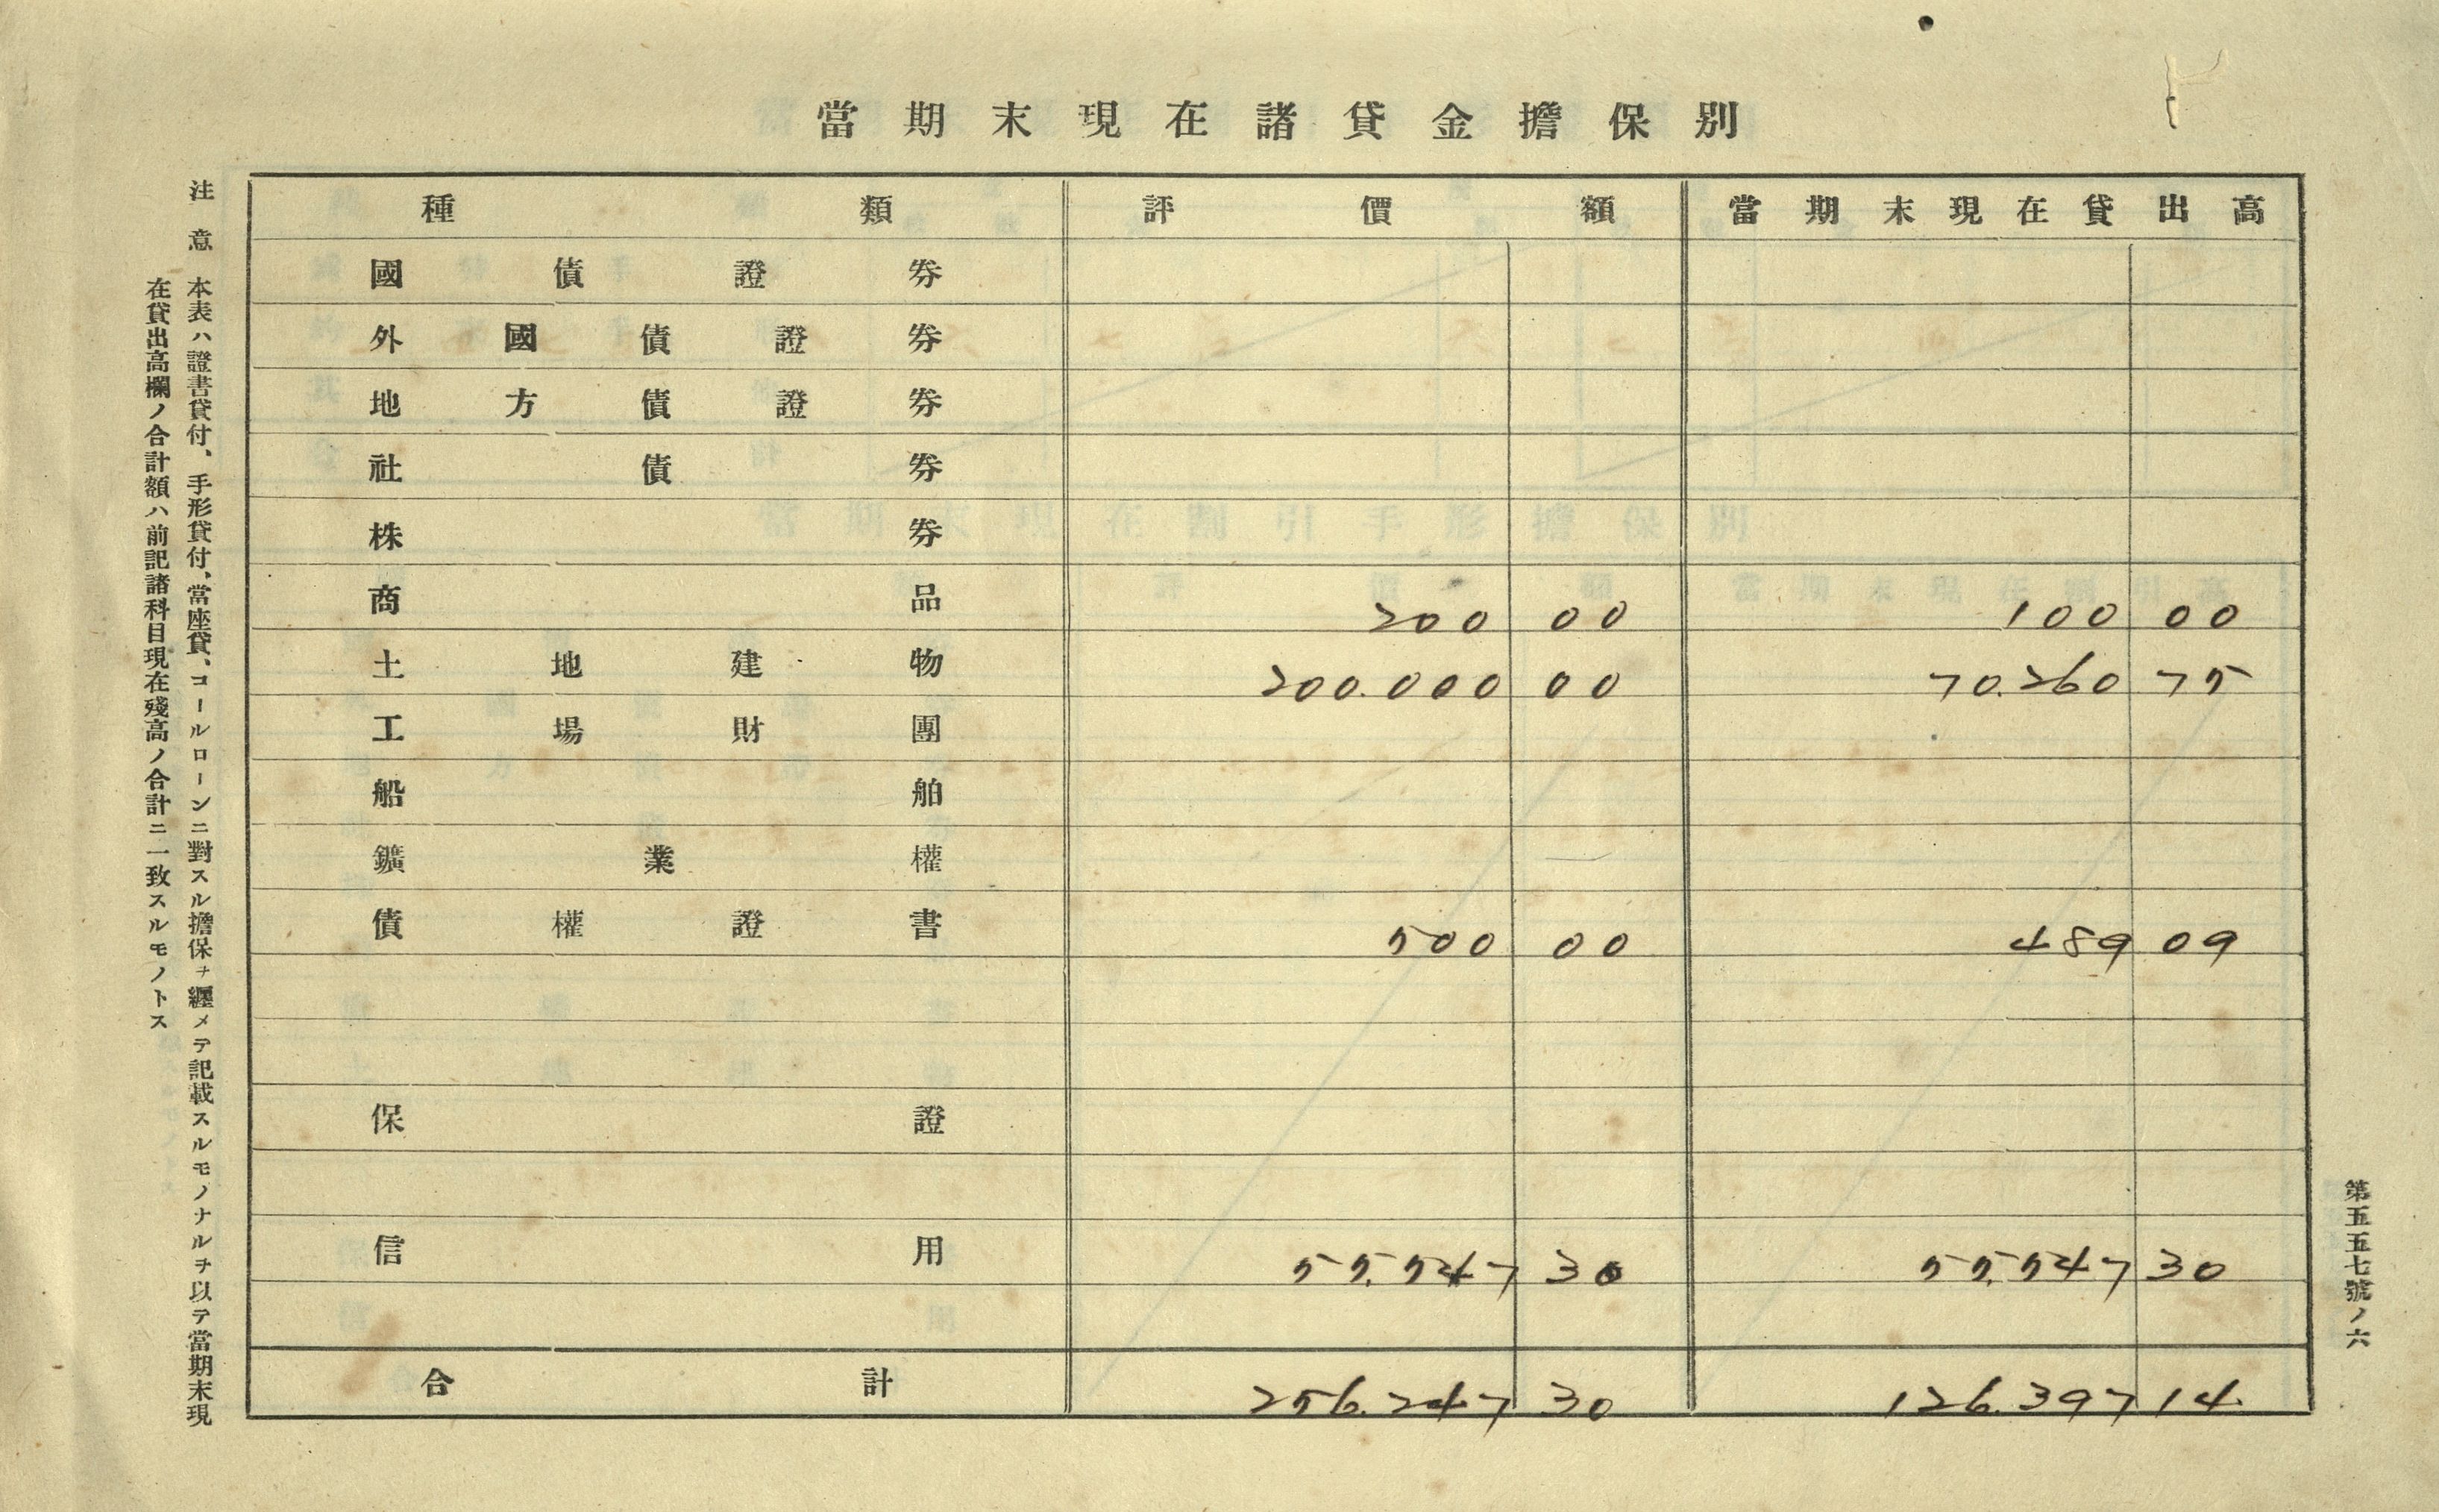 當期末現在諸貸金擔保別
種類 評價額 當期末現在貸出高
國債證券
外國債證券
地方債證券
社債券
株券
商品 200 00 100 00
土地建物 200.000 00 70.260 75
工場財團
船舶
鑛業權
債權證書 500 00 489 09
保證
信用 55.547 30 55.547 30
合計 256.247 30 126.397 14
第五五七號ノ六
注意 本表ハ證書貸付、手形貸付、當座貸、コールローンニ對スル擔保ヲ纒メテ記載スルモノナルヲ以テ當期末現
在貸出高欄ノ合計額ハ前記諸科目現在殘高ノ合計ニ一致スルモノトス